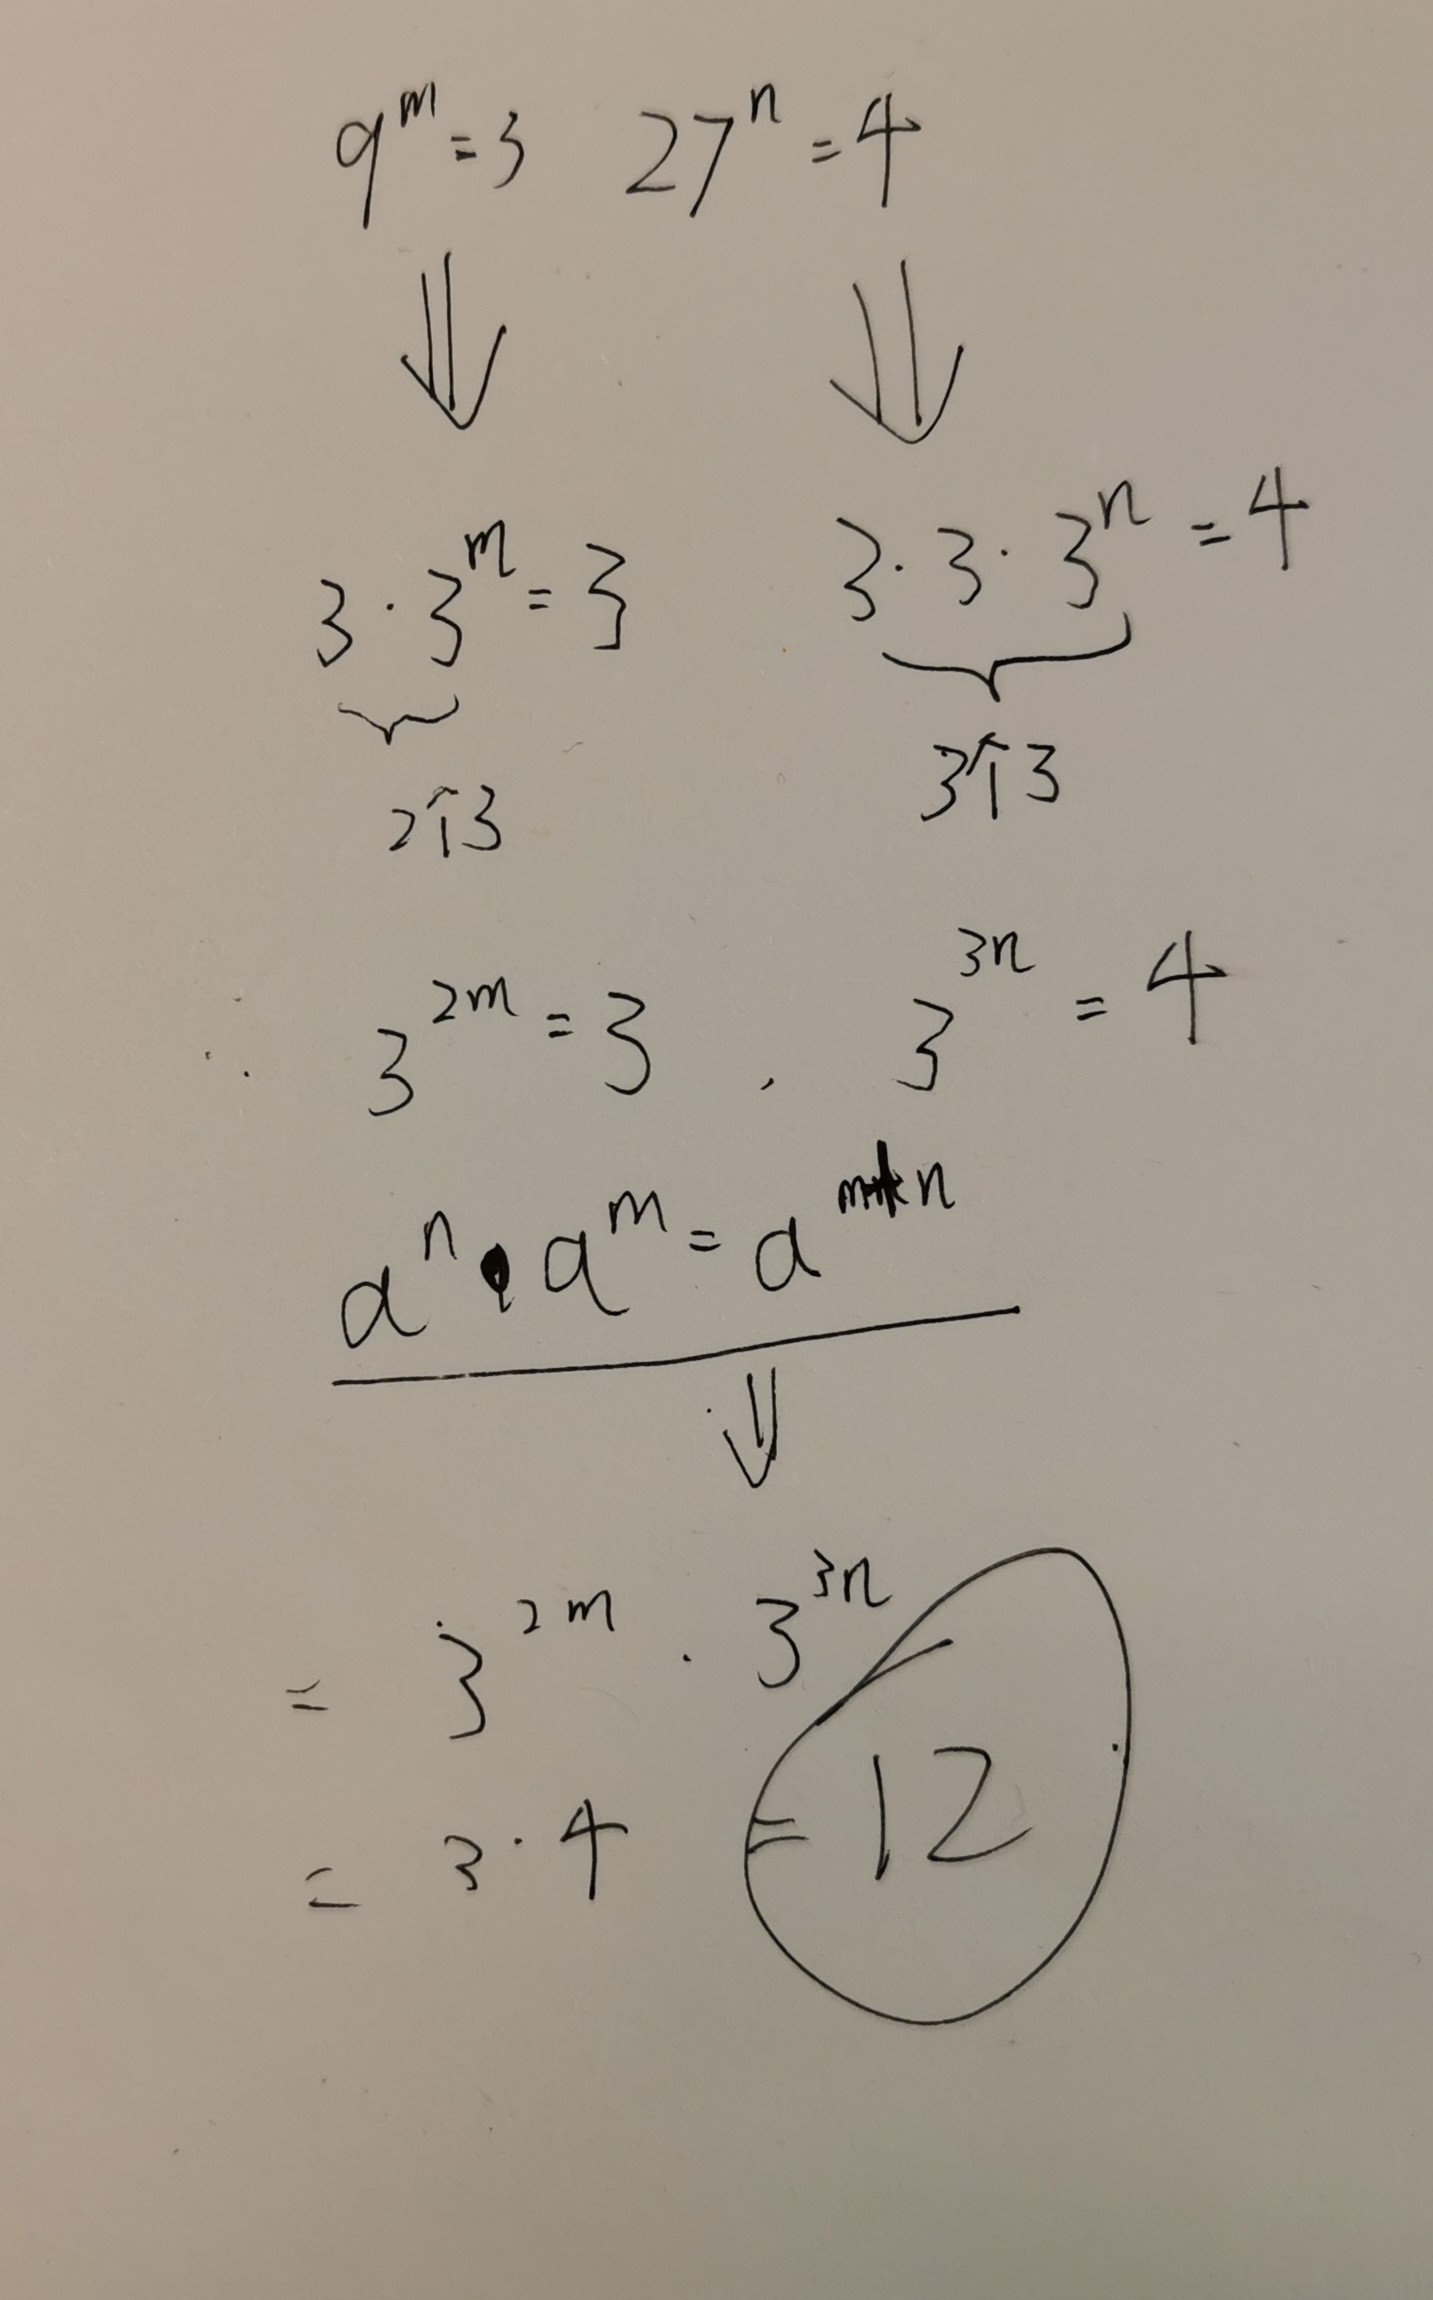 9^m=3 27^n=4
3·3^m=3 3·3·3^n=4
2个3 3个3
3^2m=3, 3^3n=4
a^n·a^m=a^m+n
=3^2m·3^3n
=3·4 =12